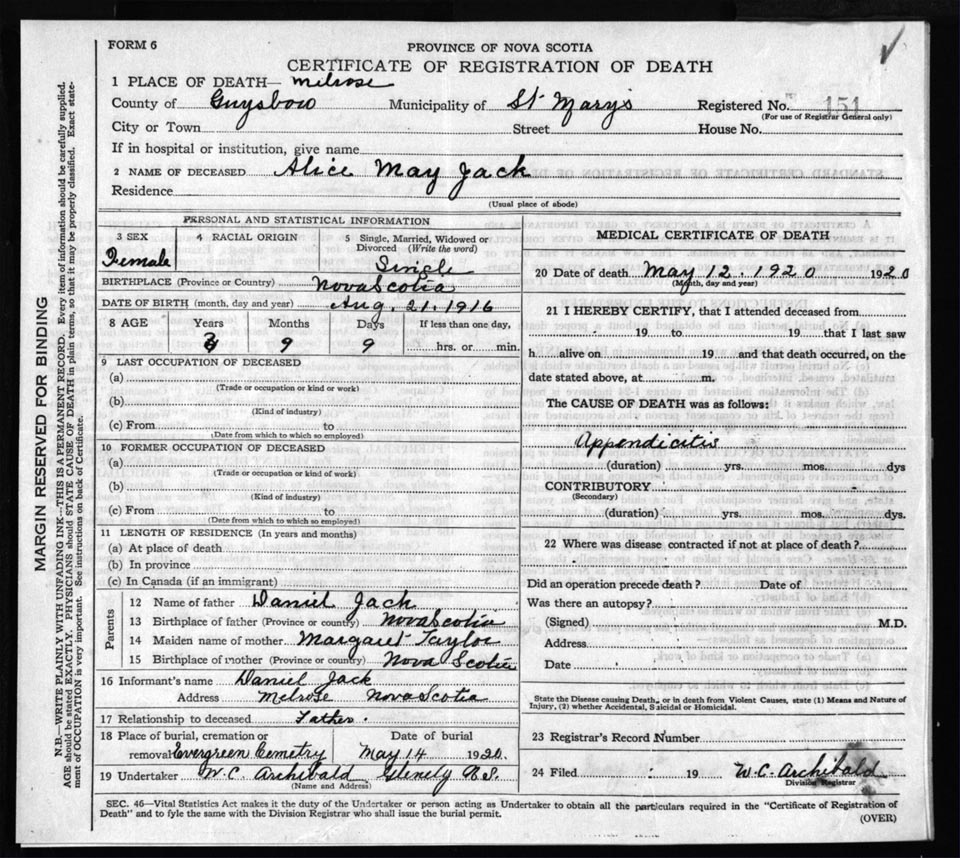 FORM 6
PROVINCE OF NOVA SCOTIA
CERTIFICATE OF REGISTRATION OF DEATH
1 PLACE OF DEATH— Melrose
County of Guysboro Municipality of St Mary's Registered No. 151
(For use of Registrar General only)
City or Town Street House No.
If in hospital or institution, give name
2 NAME OF DECEASED Alice May Jack
Residence
(Usual place of abode)
PERSONAL AND STATISTICAL INFORMATION
3 SEX 4 RACIAL ORIGIN 5 Single, Married, Widowed or Divorced (Write the word)
Female Single
BIRTHPLACE (Province or Country) Nova Scotia
DATE OF BIRTH (month, day and year) Aug. 21. 1916
8 AGE Years Months Days If less than one day,
3 9 9 hrs. or min.
9 LAST OCCUPATION OF DECEASED
(a)
(Trade or occupation or kind of work)
(b)
(Kind of industry)
(c) From to
(Date from which to which so employed)
10 FORMER OCCUPATION OF DECEASED
(a)
(Trade or occupation or kind of work)
(b)
(Kind of industry)
(c) From to
(Date from which to which so employed)
11 LENGTH OF RESIDENCE (In years and months)
(a) At place of death
(b) In province
(c) In Canada (if an immigrant)
Parents
12 Name of father Daniel Jack
13 Birthplace of father (Province or country) Nova Scotia
14 Maiden name of mother Margaret Taylor
15 Birthplace of mother (Province or country) Nova Scotia
16 Informant's name Daniel Jack
Address Melrose Nova Scotia
17 Relationship to deceased Father.
18 Place of burial, cremation or removal Evergreen Cemetry
Date of burial May 14 1920.
19 Undertaker W. C. Archibald Glenelg N.S.
(Name and Address)
MEDICAL CERTIFICATE OF DEATH
20 Date of death May 12. 1920 1920
(Month, day and year)
21 I HEREBY CERTIFY, that I attended deceased from
19 to 19 that I last saw
h alive on 19 and that death occurred, on the
date stated above, at m.
The CAUSE OF DEATH was as follows:
Appendicitis
(duration) yrs. mos. dys
CONTRIBUTORY
(Secondary)
(duration) yrs. mos. dys.
22 Where was disease contracted if not at place of death?
Did an operation precede death? Date of
Was there an autopsy?
(Signed) M.D.
Address
Date
State the Disease causing Death, or in death from Violent Causes, state (1) Means and Nature of
Injury, (2) whether Accidental, Suicidal or Homicidal.
23 Registrar's Record Number
24 Filed 19 W. C. Archibald
Division Registrar
SEC. 46—Vital Statistics Act makes it the duty of the Undertaker or person acting as Undertaker to obtain all the particulars required in the "Certificate of Registration of
Death" and to fyle the same with the Division Registrar who shall issue the burial permit.
(OVER)
MARGIN RESERVED FOR BINDING
N.B.—WRITE PLAINLY WITH UNFADING INK—THIS IS A PERMANENT RECORD. Every item of information should be carefully supplied.
AGE should be stated EXACTLY. PHYSICIANS should STATE CAUSE OF DEATH in plain terms, so that it may be properly classified. Exact state-
ment of OCCUPATION is very important. See instructions on back of Certificate.